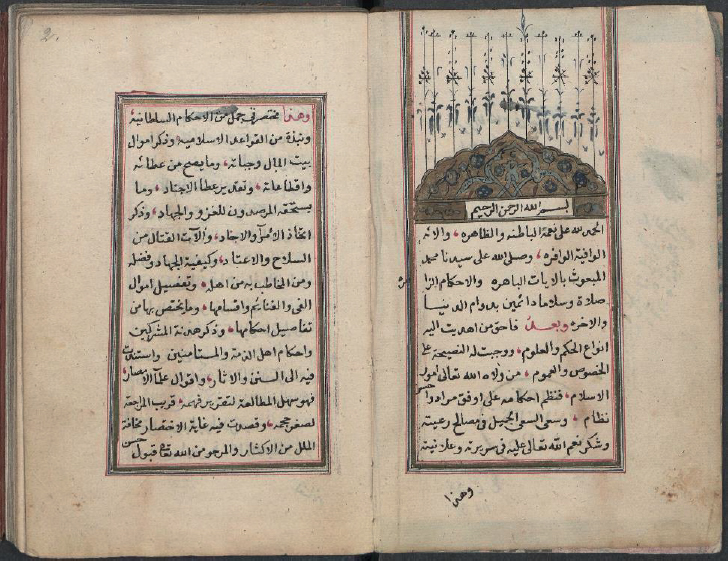 بسم الله الرحمن الرحيم
الحمد لله على نعمة الباطنه والظاهره، والائه
الوافية الوافره، وصلى الله على سيدنا محمد
المبعوث بالايات الباهره والاحكام الزا
هره
صلاة وسلاما دائمين بدوام الدنيا
والاخره وبعد فاحق من اهديت اليه
انواع الحكم والعلوم، ووجبت له النصيحة على
الخصوص والعموم، من ولاه الله تعالى امور
الاسلام، فنظم احكامه على اوفق مراد واحسن
نظام، وسعى السعى الجميل فى مصالح رعيته
وشكر نعم الله تعالى عليه فى سريرته وعلانيته
وهذا
2.
وهذا مختصر فى جمل من الاحكام السلطانية
ونبذة من القواعد الاسلاميه وذكر اموال
بيت المال وجهاته، وما يصح من عطائه
واقطاعاته، وتقدير عطا الاجناد، وما
يستحقه المرصدون للغزو والجهاد، وذكر
اتخاذ الامرآ والاجناد، وآلات القتال من
السلاح والاعتاد، وكيفية الجهاد وفضله
ومن المخاطب به من اهله، وتفصيل اموال
الفى والغنائم واقسامها، وما يختص بها من
تفاصيل احكامها، وذكر هدنة المشركين
واحكام اهل الذمة والمستامنين واستندت
فيه الى السنن والاثار، واقوال علمآ الامصار،
فهو سهل المطالعة لتقريب فهمه، قريب المراجعة
لصغر حجمه، وقصدت فيه غاية الاختصار مخافة
الملل من الاكثار والمرجو من الله تعالى حسن قبول